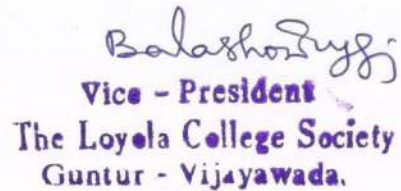 Balashowrygj
Vice - President
The Loyola College Society
Guntur - Vijayawada.